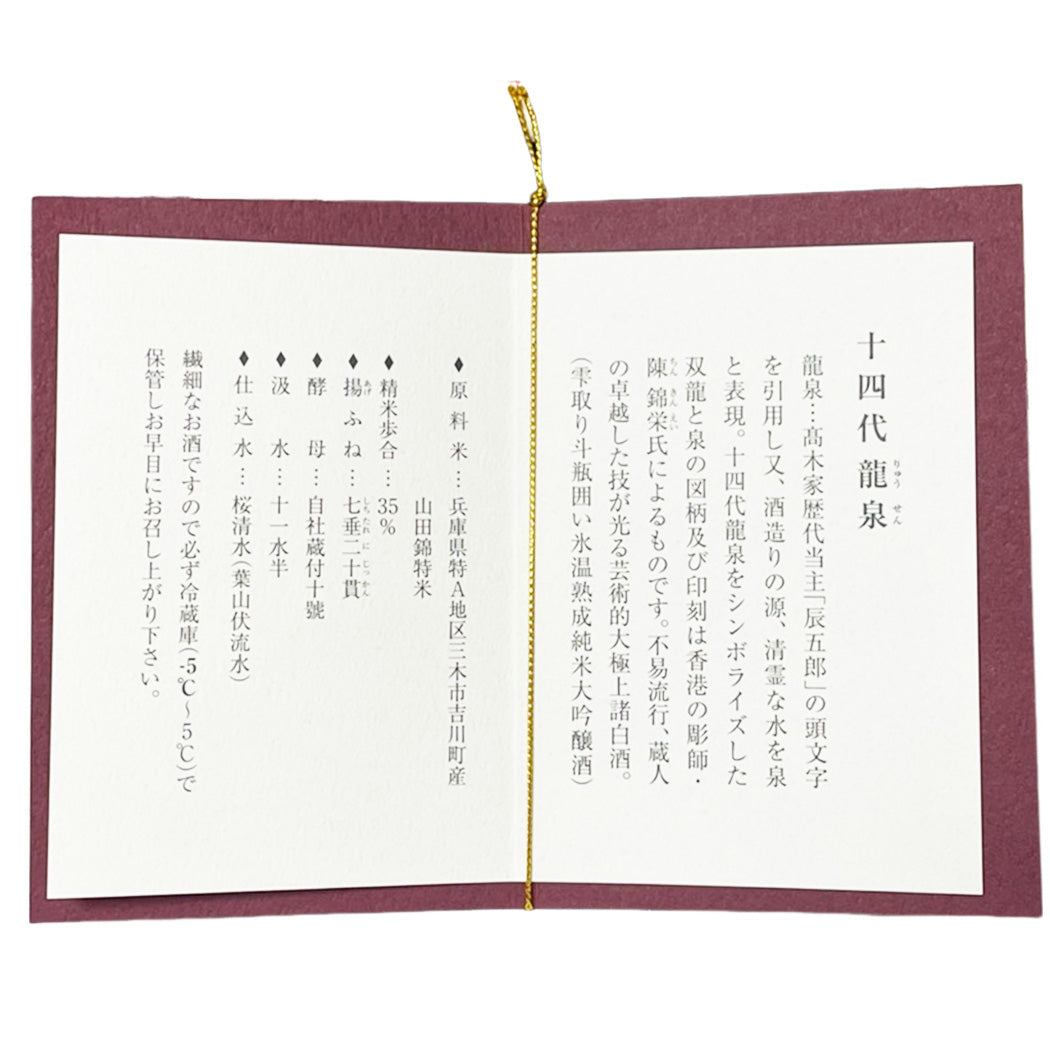 十四代 龍泉
りゅう せん
龍泉…髙木家歴代当主「辰五郎」の頭文字
を引用し又、酒造りの源、清霊な水を泉
と表現。十四代龍泉をシンボライズした
双龍と泉の図柄及び印刻は香港の彫師・
陳錦栄氏によるものです。不易流行、蔵人
ちん きん えい
の卓越した技が光る芸術的大極上諸白酒。
(雫取り斗瓶囲い氷温熟成純米大吟醸酒)
♦原料米…兵庫県特A地区三木市吉川町産
山田錦特米
♦精米歩合…35%
♦揚ふね…七垂二十貫
あげ しちたれ に じっかん
♦酵母…自社蔵付十號
♦汲水…十一水半
♦仕込水…桜清水(葉山伏流水)
繊細なお酒ですので必ず冷蔵庫(-5℃〜5℃)で
保管しお早目にお召し上がり下さい。